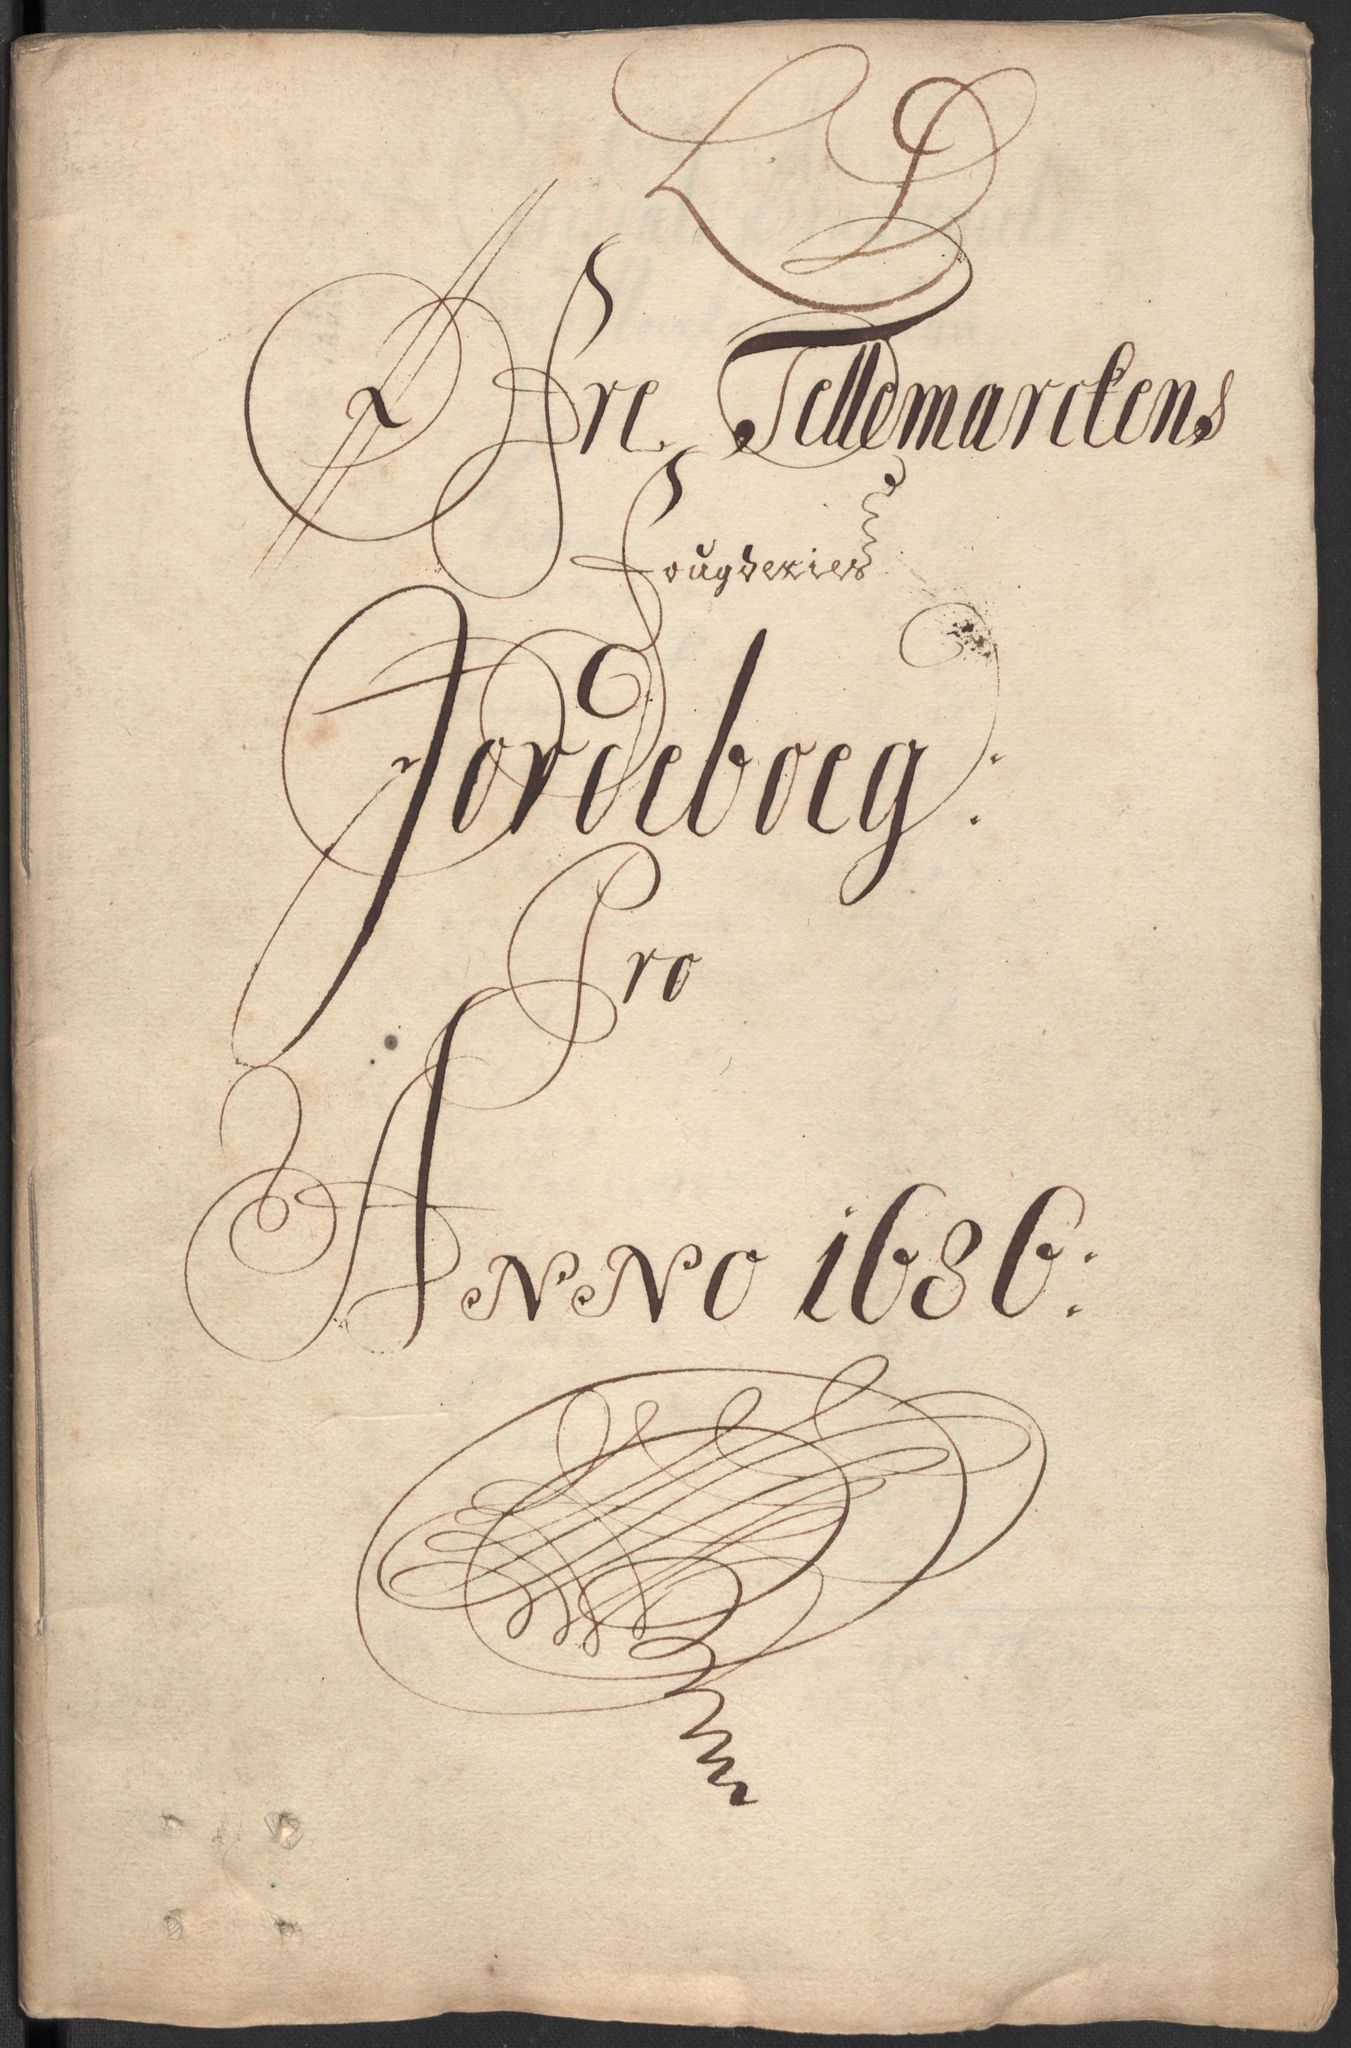 LD
Øfre Tellemarckens
Fougderies
Jordeboeg:
Pro
ANNO 1686: